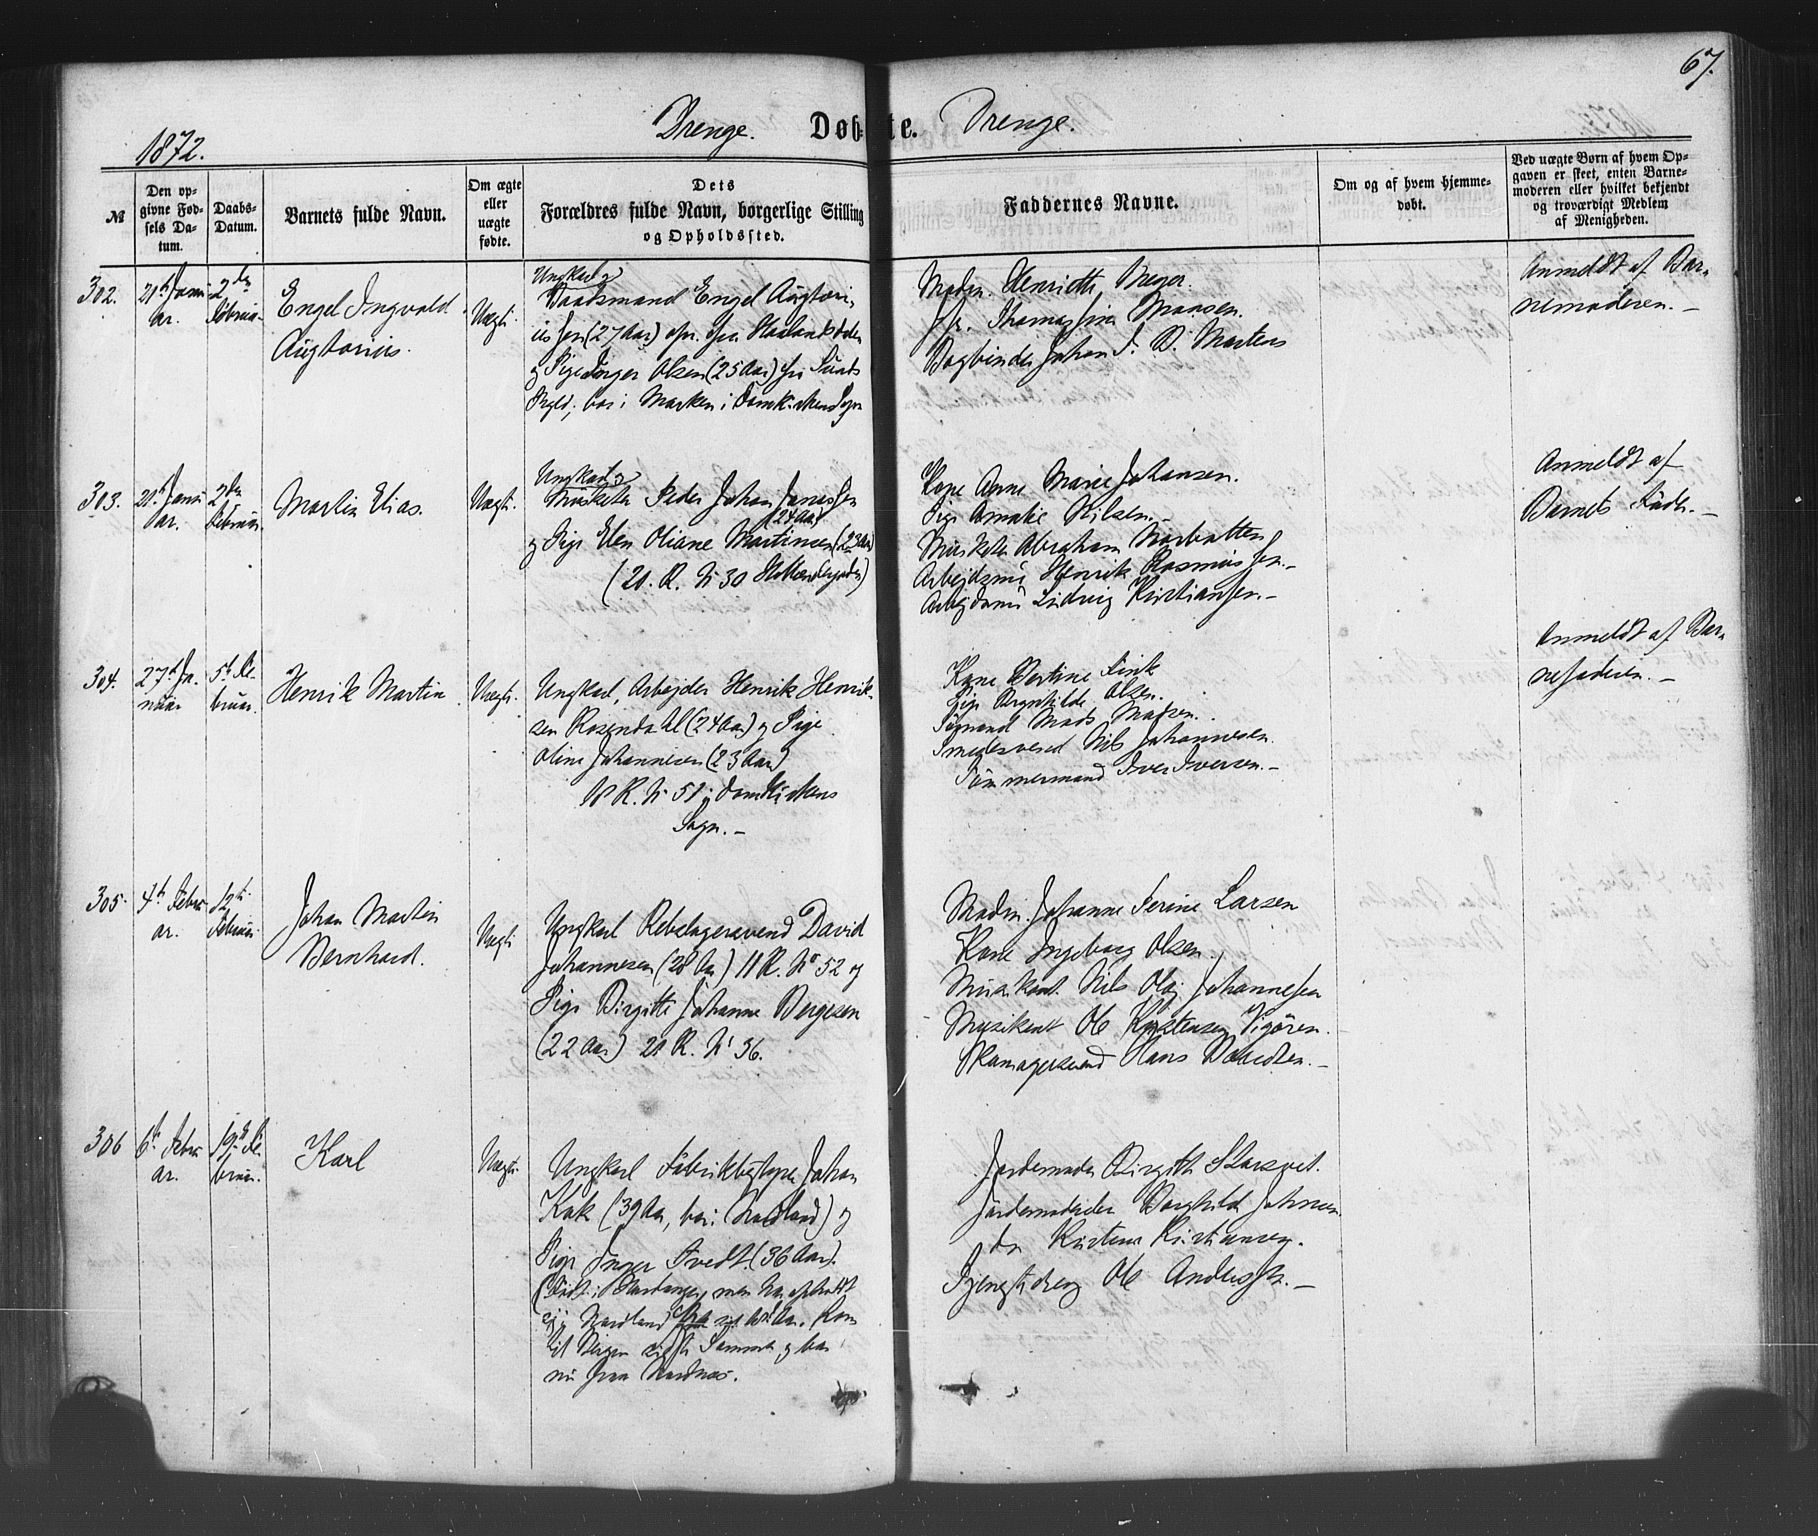 67.
1872.
Drenge.
Døbte.
Drenge.
№
Den op-
givne Fød-
sels Da-
tum.
Daabs-
Datum.
Barnets fulde Navn.
Om ægte
eller
uægte
fødte.
Dets
Forældres fulde Navn, borgerlige Stilling
og Opholdssted.
Faddernes Navne.
Om og af hvem hjemme-
døbt.
Ved uægte Børn af hvem Op-
gaven er skeet, enten Barne-
moderen eller hvilket bekjendt
og troværdigt Medlem
af Menigheden.
302.
21de Janu
ar.
2den
Februar.
Engel Ingvald
Augtorius.
Uægte.
Ungkarl og
Baadsmand Engel Augtori-
ussen (27 Aar) fra
og Pige Inger Olsen (25 Aar) fra Sunds
bor i Marken i Domkirkens Sogn
Madm. Henriette Meyer.
Jfr. Thomassine Monsen.
Bogbinder Johan F. D. Martens
Anmeldt af Bar-
nemoderen. -
303.
21de Janu
ar.
2den
Februar.
Martin Elias.
Uægte.
Ungkarl og
Musketer Peder Johan Jonassen
(24 Aar)
og Pige Elen Oliane Martinsen (23 Aar)
(21. R. № 30 Hollendergaden)
Kone Anne Marie Johansen.
Pige Amalie Nilsen. -
Musketer Abraham
Arbejdsmd Henrik Rasmussen. -
Arbejdsmd Ludvig Kristiansen. -
Anmeldt af
Barnets Fader. -
304.
27de Ja-
nuar
5te Fe-
bruar.
Henrik Martin
Uægte.
Ungkarl, Arbejder Henrik Henrik-
sen Rosendahl (24 Aar) og Pige
Oline Johannesen (23 Aar)
18 R. № 51 i Domkirkens
Sogn. -
Kone Bertine Fink
Pige Brynhilde Olsen.
Sømand Mads Madsen.
Smedesvend Nils Johannesen.
Tømmermand Iver Iversen. -
Anmeldt af Bar-
nefaderen. -
305.
4de Febru
ar.
12te
Februar.
Johan Martin
Bernhard.
Uægte
Ungkarl Rebslagersvend David
Johannesen (28 Aar) 11 R. № 52 og
Pige Birgitte Johanne Bergesen
(22 Aar) 21 R. № 36.
Madm. Johanne Serine Larsen
Kone Ingeborg Olsen.
Musikant Nils Olaj Johannesen
Musikant Ole Kristensen Vigøren.
Skomagersvend Hans Davidsen. -
306
6te Febru
ar.
19de Fe-
bruar.
Karl
Uægte.
Ungkarl Fabrikbestyrer Johan
Kok (39 Aar, bor i Nordland) og
Pige Inger Tvedt (36 Aar).
(Født i Hardanger, men har opholdt
sig i Nordland Kom
til Bergen sidste Sommer og bor
nu paa Nordnæs.
Jordemoder Birgithe
Jordemoder Borghild Johnsen.
do Kirstine Kristiansen.
Tjenestedreng Ole Anderssen. -